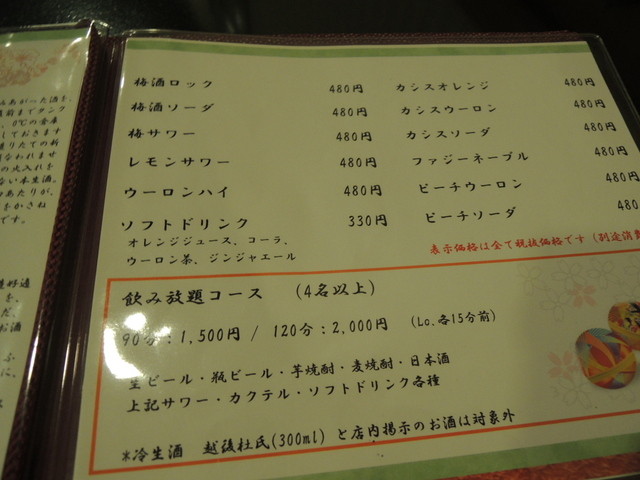 梅酒ロック 480円 カシスオレンジ 480円
梅酒ソーダ 480円 カシスウーロン 480円
梅サワー 480円 カシスソーダ 480円
レモンサワー 480円 ファジーネーブル 480円
ウーロンハイ 480円 ピーチウーロン 480円
ソフトドリンク 330円 ピーチソーダ 480
オレンジジュース、コーラ、
ウーロン茶、ジンジャエール
表示価格は全て税抜価格です(別途消費
飲み放題コース (4名以上)
90分:1,500円 / 120分:2,000円 (Lo.各15分前)
生ビール・瓶ビール・芋焼酎・麦焼酎・日本酒
上記サワー・カクテル・ソフトドリンク各種
*冷生酒 越後杜氏(300ml) と店内掲示のお酒は対象外